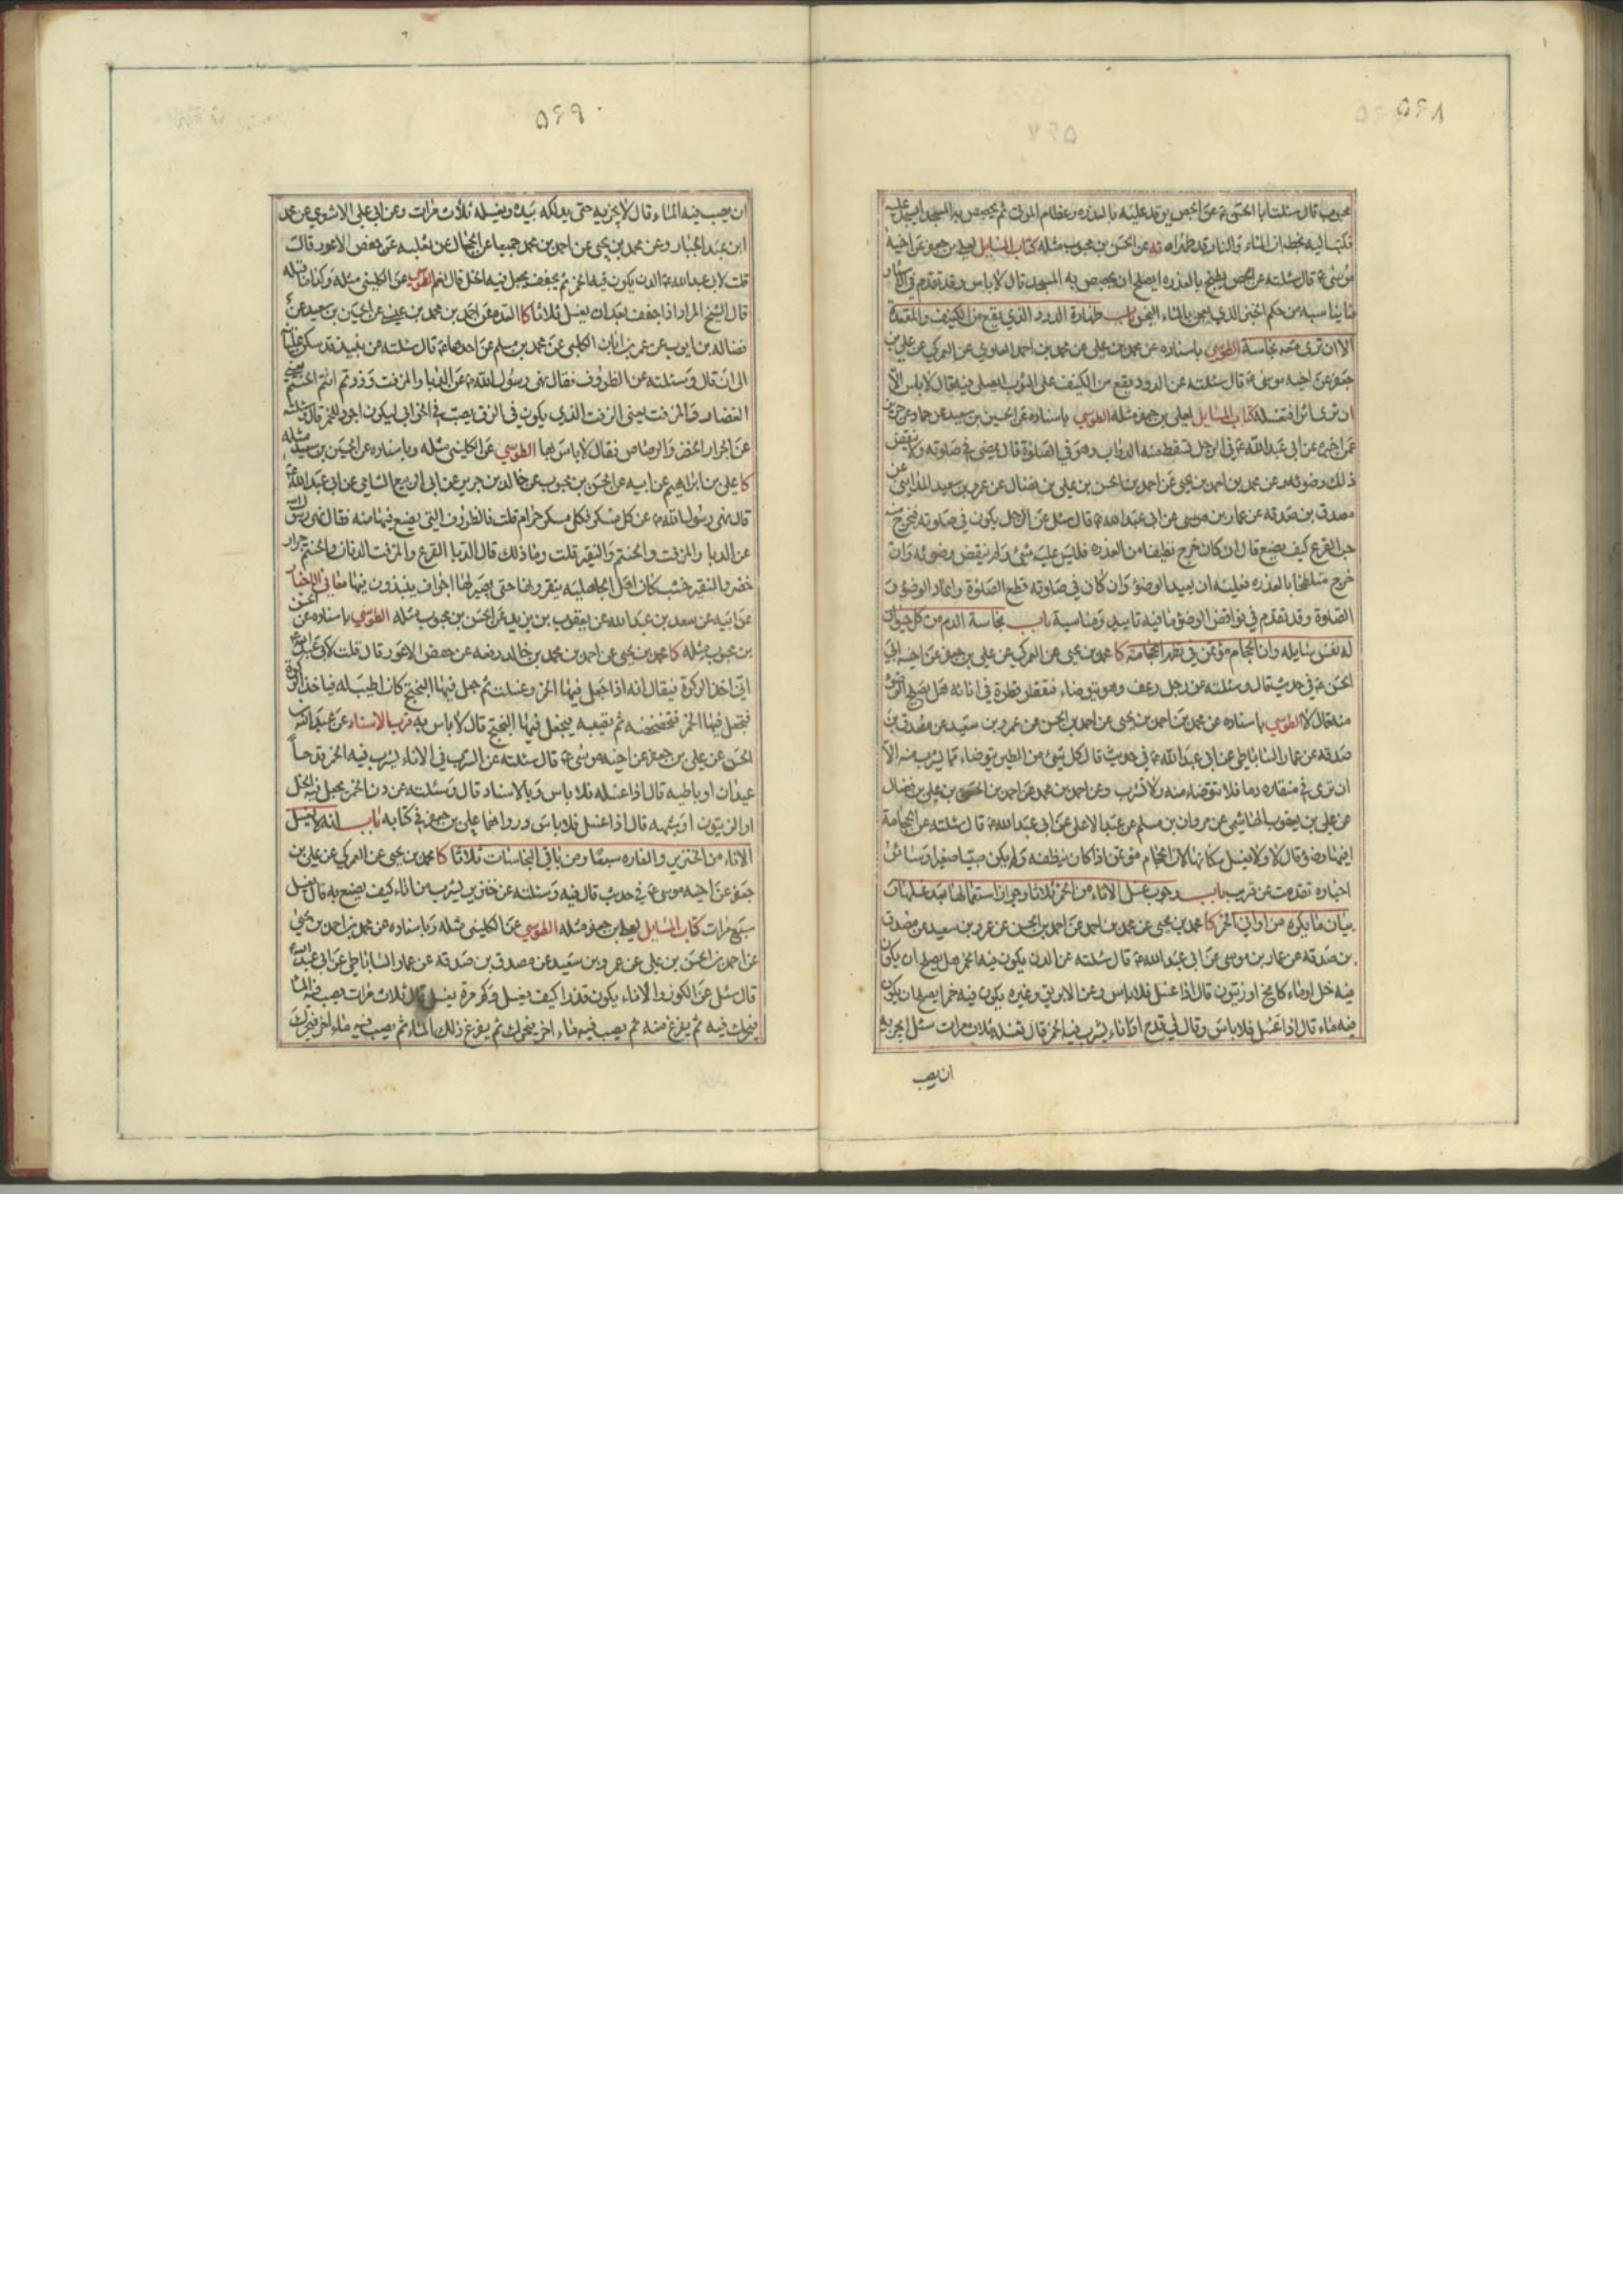 ٥٦٨
محبوب قال سئلت ابا الحسن ع عن الجص يوقد عليه بالعذره وعظام الموتى ثم يجصص به المسجد ايسجد عليه
فكتب اليه بخطه ان الماء والنار قد طهراه يه عن الحسن بن محبوب مثله كتاب المسايل لعلي بن جعفر عن اخيه
موسى ع قال سئلته عن الجص يطبخ بالعذره ايصلح ان يجصص به المسجد قال لا باس وقد تقدم في
ما يناسبه من حكم الخبز الذي يعجن بالماء النجس باب طهارة الدود الذي يقع من الكنيف والمقعدة
الا ان ترى معه نجاسة الطوسي باسناده عن محمد بن علي عن محمد بن احمد العلوي عن العمركي عن علي بن
جعفر عن اخيه موسى ع قال سئلته عن الدود يقع من الكنيف على الثوب ايصلى فيه قال لا باس الا
ان ترى اثرا فتغسله كتاب المسايل لعلي بن جعفر مثله الطوسي باسناده عن الحسين بن سعيد عن حماد عن حريز
عمن اخبره عن ابي عبد الله ع في الرجل تسقط منه الدواب وهو في الصلوة قال يمضي في صلوته ولا ينقض
ذلك وضوئه وعن محمد بن احمد بن يحيى عن احمد بن الحسن بن علي بن فضال عن عمرو بن سعيد المدايني عن
مصدق بن صدقه عن عمار بن موسى عن ابي عبد الله ع قال سئل عن الرجل يكون في صلوته فيخرج منه
حب القرع كيف يصنع قال ان كان خرج نظيفا من العذره فليس عليه شئ ولم ينقض وضوئه وان
خرج متلطخا بالعذره فعليه ان يعيد الوضوء وان كان في صلوته قطع الصلوة واعاد الوضوء و
الصلوة وقد تقدم في نواقض الوضوء ما فيه تاييد ومناسبة باب نجاسة الدم من كل حيوان
له نفس سايله وان الحجام مؤتمن في تطهر الحجامة كا محمد بن يحيى عن العمركي عن علي بن جعفر عن اخيه ابي
الحسن ع في حديث قال وسئلته عن رجل رعف وهو يتوضاء فتقطر قطرة في انائه هل يصلح الوضوء
منه قال لا الطوسي باسناده عن محمد بن احمد بن يحيى عن احمد بن الحسن عن عمرو بن سعيد عن مصدق بن
صدقه عن عمار الساباطي عن ابي عبد الله ع في حديث قال كل شئ من الطير يتوضاء مما يشرب منه الا
ان ترى في منقاره دما فلا تتوضاء منه ولا تشرب وعن احمد بن محمد عن احمد بن الحسن بن علي بن فضال
عن علي بن يعقوب الهاشمي عن مروان بن مسلم عن عبد الاعلى عن ابي عبد الله ع قال سئلته عن الحجامة
افيها وضوء قال لا ولا يغسل مكانها لان الحجام مؤتمن اذا كان ينظفه ولم يكن صبيا صغيرا وسائر
اخباره تقدمت عن قريب باب وجوب غسل الاناء من الخمر ثلاثا وجواز استعمالها بعد غسلها و
بيان ما يكره من اواني الخمر كا محمد بن يحيى عن محمد بن احمد عن احمد بن الحسن عن عمرو بن سعيد عن مصدق
بن صدقه عن عمار بن موسى عن ابي عبد الله ع قال سئلته عن الدن يكون فيه الخمر هل يصلح ان يكون
فيه خل او ماء كامخ او زيتون قال اذا غسل فلا باس وعن الابريق وغيره يكون فيه خمر ايصلح ان يكون
فيه ماء قال اذا غسل فلا باس وقال في قدح او اناء يشرب فيه الخمر قال تغسله ثلاث مرات سئل ايجزيه
ان يصب
٥٦٩
ان يصب فيه الماء قال لا يجزيه حتى يدلكه بيده ويغسله ثلاث مرات وعن ابي علي الاشعري عن محمد
ابن عبد الجبار وعن محمد بن يحيى عن احمد بن محمد جميعا عن الحجال عن ثعلبه عن حفص الاعور قال
قلت لابي عبد الله ع الدن يكون فيه الخمر ثم يجفف يجعل فيه الخل قال نعم الطوسي عن الكليني مثله وكذا ما قبله
قال الشيخ المراد اذا جفف بعد ان يغسل ثلاثا كا العده عن احمد بن محمد بن عيسى عن الحسين بن سعيد عن
فضاله بن ايوب عن عمر بن ابان الكلبي عن محمد بن مسلم عن احدهما ع قال سئلته عن نبيذ قد سكن غليانه
الى ان قال وسئلته عن الظروف فقال نهى رسول الله ص عن الدبا والمزفت وزدتم انتم الحنتم يعني
الغضار والمزفت يعني الزفت الذي يكون في الزق يصب في الخوابي ليكون اجود للخمر قال وسئلته
عن الجرار الخضر والرصاص فقال لا باس بها الطوسي عن الكليني مثله وباسناده عن الحسين بن سعيد مثله
كا علي بن ابراهيم عن ابيه عن الحسن بن محبوب عن خالد بن جرير عن ابي الربيع الشامي عن ابي عبد الله ع
قال نهى رسول الله ص عن كل مسكر فكل مسكر حرام قلت فالظروف التي يصنع فيها منه فقال نهى رسول الله
عن الدبا والمزفت والحنتم والنقير قلت وما ذلك قال الدبا القرع والمزفت الدنان والحنتم جرار
خضر والنقير خشب كان اهل الجاهليه ينقرونها حتى يصير لها اجواف ينبذون فيها معاني الاخبار
عن ابيه عن سعد بن عبد الله عن يعقوب بن يزيد عن الحسن بن محبوب مثله الطوسي باسناده عن الحسن
بن محبوب مثله كا محمد بن يحيى عن احمد بن محمد بن خالد رفعه عن حفص الاعور قال قلت لابي عبد الله ع
اني اخذ الركوة فيقال انه اذا جعل فيها الخمر وغسلت ثم جعل فيها البختج كان اطيب له فياخذ الركوة
فيجعل فيها الخمر فتخضخضه ثم يصبه فيجعل فيها البختج قال لا باس به قرب الاسناد عن عبد الله بن
الحسن عن علي بن جعفر عن اخيه موسى ع قال سئلته عن الشرب في الاناء يشرب فيه الخمر قدحا
عيدان او باطيه قال اذا غسله فلا باس وبالاسناد قال وسئلته عن دن الخمر يجعل فيه الخل
او الزيتون او شبهه قال اذا غسل فلا باس ورواهما علي بن جعفر في كتابه باب انه يغسل
الاناء من الخنزير والفاره سبعا ومن باقي النجاسات ثلاثا كا محمد بن يحيى عن العمركي عن علي بن
جعفر عن اخيه موسى ع في حديث قال فيه وسئلته عن خنزير يشرب من اناء كيف يصنع به قال يغسل
سبع مرات كتاب المسايل لعلي بن جعفر مثله الطوسي عن الكليني مثله وباسناده عن محمد بن احمد بن يحيى
عن احمد بن الحسن بن علي عن عمرو بن سعيد عن مصدق بن صدقه عن عمار الساباطي عن ابي عبد الله ع
قال سئل عن الكوز والاناء يكون قذرا كيف يغسل وكم مرة يغسل قال ثلاث مرات يصب فيه الماء
فيحرك فيه ثم يفرغ منه ثم يصب فيه ماء اخر فيحرك ثم يفرغ ذلك الماء ثم يصب فيه ماء اخر فيحرك